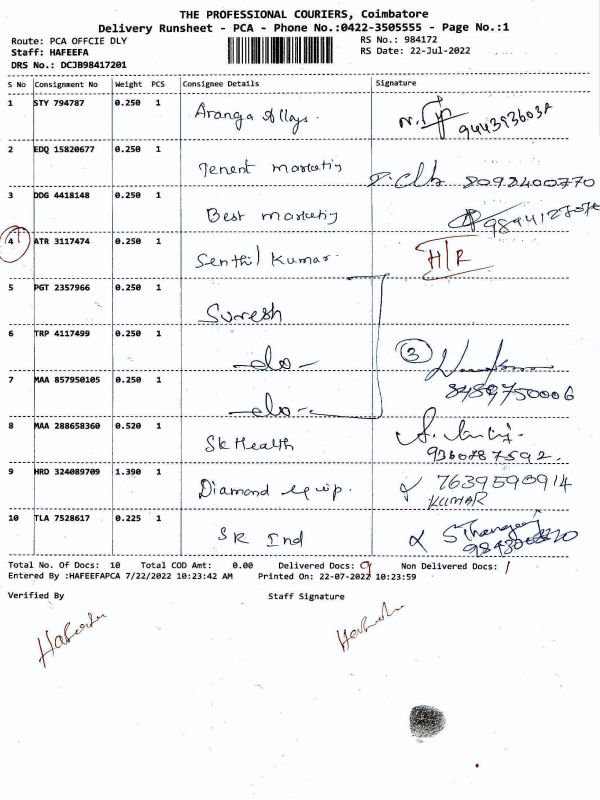 THE PROFESSIONAL COURIERS, Coimbatore
Delivery Runsheet - PCA - Phone No.:0422-3505555 - Page No.:1
Route: PCA OFFCIE DLY RS No.: 984172
Staff: HAFEEFA RS Date: 22-Jul-2022
DRS No.: DCJB98417201
S No Consignment No Weight PCS Consignee Details Signature
1 STY 794787 0.250 1 Aranga Alloys.
2 EDQ 15820677 0.250 1 Tenent marketing 8098400770
3 DDG 4418148 0.250 1 Best marketing
4 ATR 3117474 0.250 1 Senthil Kumar. H/R
5 PGT 2357966 0.250 1 Suresh
6 TRP 4117499 0.250 1 -do- 3
7 MAA 857950105 0.250 1 -do- 8489750006
8 MAA 288658360 0.520 1 Sk Health 9360787592.
9 HRD 324089709 1.390 1 Diamond equip. 7639590914
KUMAR
10 TLA 7528617 0.225 1 SR Ind
Total No. Of Docs: 10 Total COD Amt: 0.00 Delivered Docs: 9 Non Delivered Docs: 1
Entered By :HAFEEFAPCA 7/22/2022 10:23:42 AM Printed On: 22-07-2022 10:23:59
Verified By Staff Signature